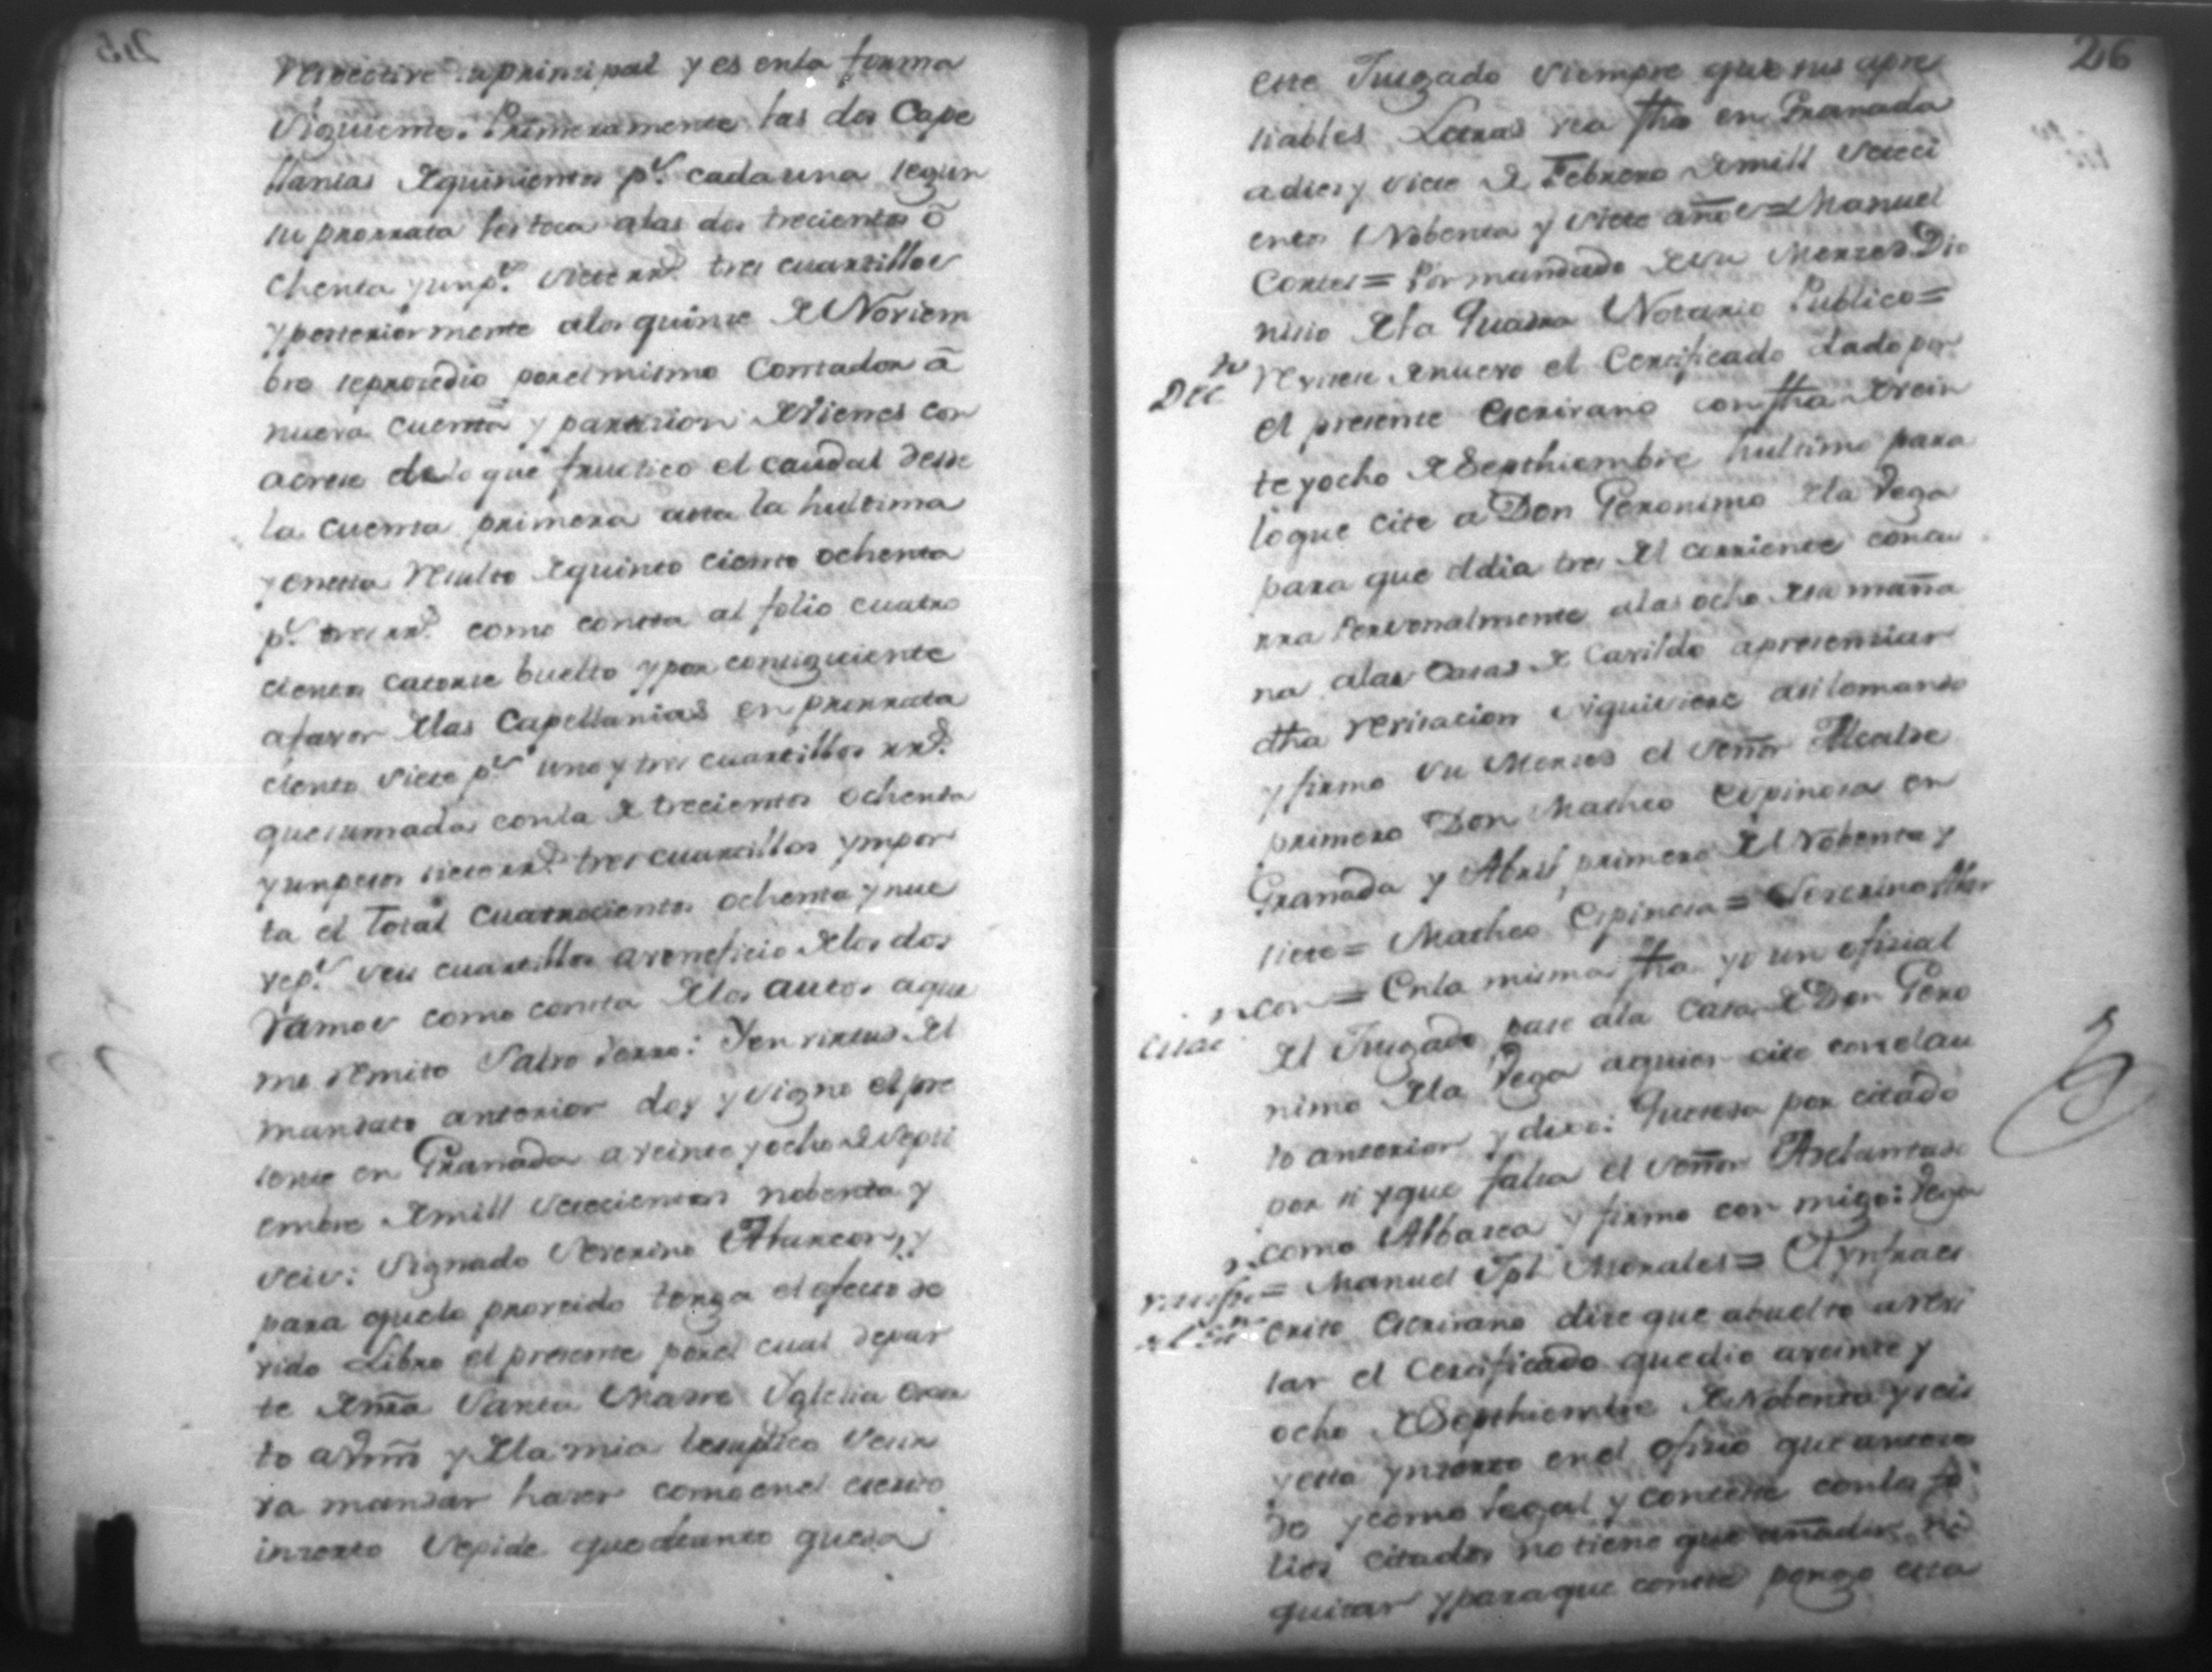 respective su principal y es enla forma
siguiente. Primeramente las dos Cape
llanias de quinientos ps. cada una segun
su prorrata les toca alas dos trecientos o
chenta y un ps. siete rrs. tres cuartillos
y posteriormente alos quinse de Noviem
bre se prosedio por el mismo Contador a
nueva cuenta y particion de vienes con
acrese de lo que fructico el caudal desde
la cuenta primera asta la hultima
y en esta resulto de quinto ciento ochenta
ps. tres rrs. como consta al folio cuatro
cientos catorse buelto y por consiguiente
afavor de las Capellanias en prorrata
ciento siete ps. uno y tres cuartillos rrs.
que sumada con la de trecientos ochenta
y un pesos siete rrs. tres cuartillos ympor
ta el Total cuatrocientos ochenta y nue
ve ps. seis cuartillos a veneficio de los dos
ramos como consta de los autos aque
me remito salvo yerro: Y en virtud del
mandato anterior doy y signo el pre
sente en Granada a veinte y ocho de Septi
embre de mill setecientos nobenta y
seis: Signado Severino Alarcon, y
para que lo proveido tenga el efecto de
vido Libro el presente por el cual depar
te de nra Santa Madre Yglesia
to a Vm y de la mia le suplico se sir
va mandar haser como en el escrito
inserto se pide que de tanto quesea
26
este Jusgado siempre que sus apre
siables Letras vea fha en Granada
a dies y siete de Febrero de mill seteci
entos Nobenta y siete años = Manuel
Cortes = Por mandado de su Merced Dio
nisio de la Quadra Notario Publico =
Dec to
revisese de nuevo el Certificado dado por
el presente Escrivano con fha de vein
te y ocho de Septhiembre hultimo para
lo que cite a Don Geronimo de la Vega
para que el dia tres del corriente concu
rra Personalmente a las ocho de la maña
na a las Casas de Cavildo a presensiar
dha revisacion si quisiere asi lo mando
y firmo su Merced el Señor Alcalde
primero Don Matheo Espinosa en
Granada y Abril primero del Nobenta y
siete = Matheo Espinosa = Severino Alar
con = En la misma fha yo un ofisial
del Jusgado pase a la Casa de Don Gero
nimo de la Vega a quien cite con el au
to anterior y dixo: Que se da por citado
por si y que falta el señor Adelantado
como Albasea y firmo con migo: Vega
= Manuel Jph Morales = El ynfraes
crito Escrivano dise que a buelto a revi
sar el Certificado que dio a veinte y
ocho de Septhiembre de Nobenta y seis
y esta ynserto en el ofisio que antece
de y como legal y conteste con los fo
lios citados no tiene que añadir ni
quitar y para que conste pongo esta